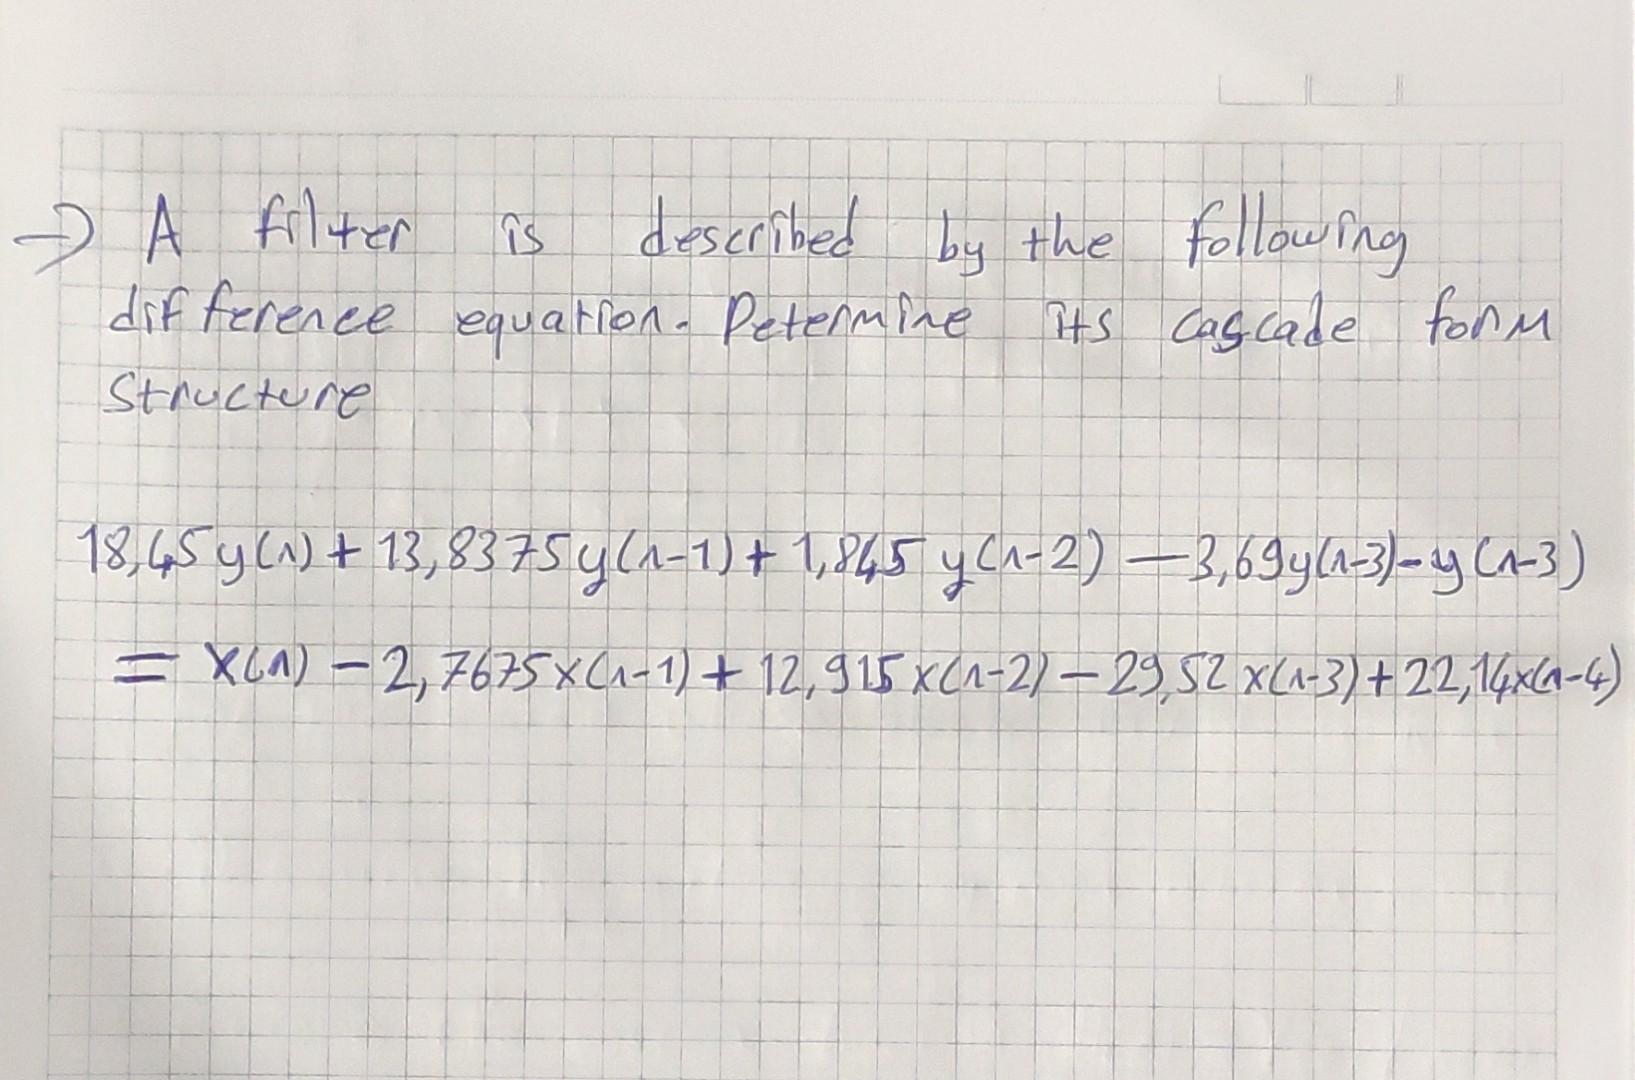 → A filter is described by the following
difference equation. Determine its cascade form
structure
18,45 y(n) + 13,8375 y(n-1) + 1,845 y(n-2) - 3,69 y(n-3) - y(n-3)
= x(n) - 2,7675 x(n-1) + 12,915 x(n-2) - 29,52 x(n-3) + 22,14 x(n-4)